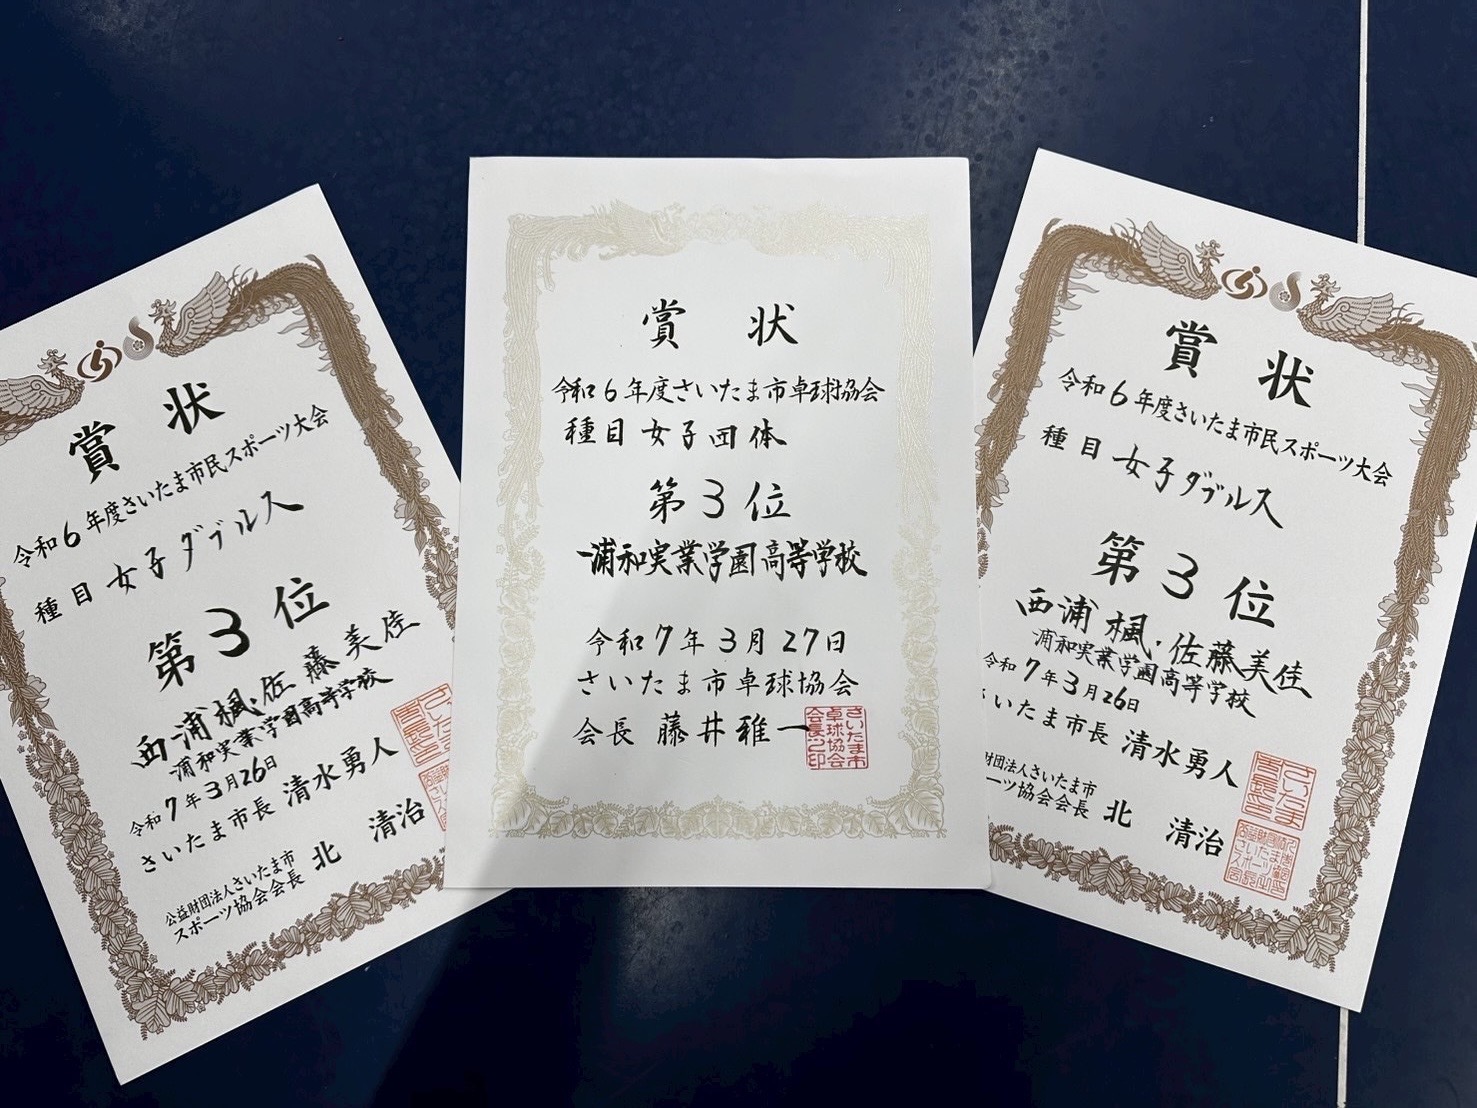 賞 状
令和6年度さいたま市民スポーツ大会
種目 女子ダブルス
第3位
西浦楓・佐藤美佳
浦和実業学園高等学校
令和7年3月26日
さいたま市長 清水勇人
公益財団法人さいたま市
スポーツ協会会長 北 清治
賞 状
令和6年度さいたま市卓球協会
種目 女子団体
第3位
浦和実業学園高等学校
令和7年3月27日
さいたま市卓球協会
会長 藤井雅一
さいたま市
卓球協会
会長之印
賞 状
令和6年度さいたま市民スポーツ大会
種目 女子ダブルス
第3位
西浦楓・佐藤美佳
浦和実業学園高等学校
令和7年3月26日
さいたま市長 清水勇人
財団法人さいたま市
ーツ協会会長 北 清治